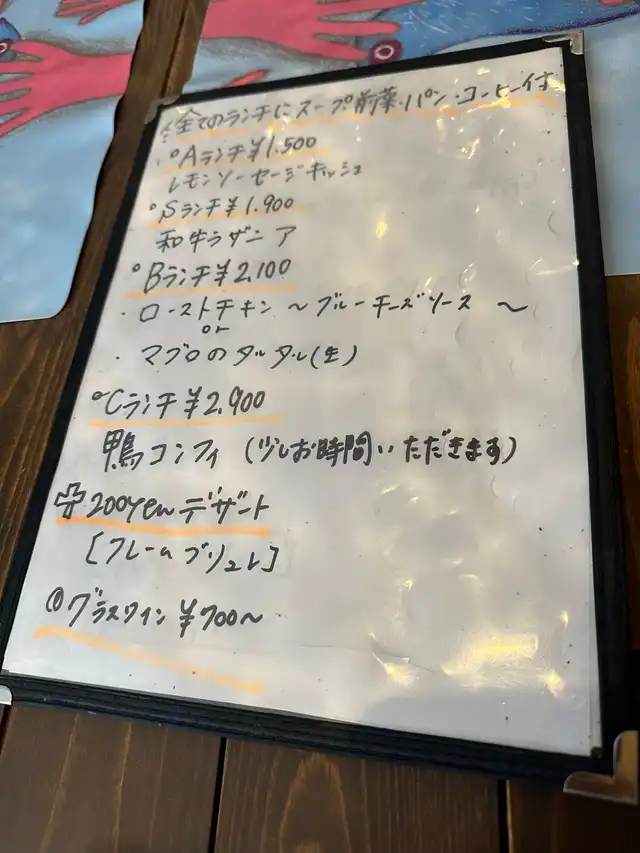 全てのランチにスープ前菜・パン・コーヒー付
°Aランチ¥1.500
レモンソーセージキッシュ
°Sランチ¥1.900
和牛ラザニア
°Bランチ¥2.100
・ローストチキン 〜ブルーチーズソース 〜
or
・マグロのタルタル(生)
°Cランチ¥2.900
鴨コンフィ (少しお時間いただきます)
200yenデザート
[クレームブリュレ]
グラスワイン ¥700〜